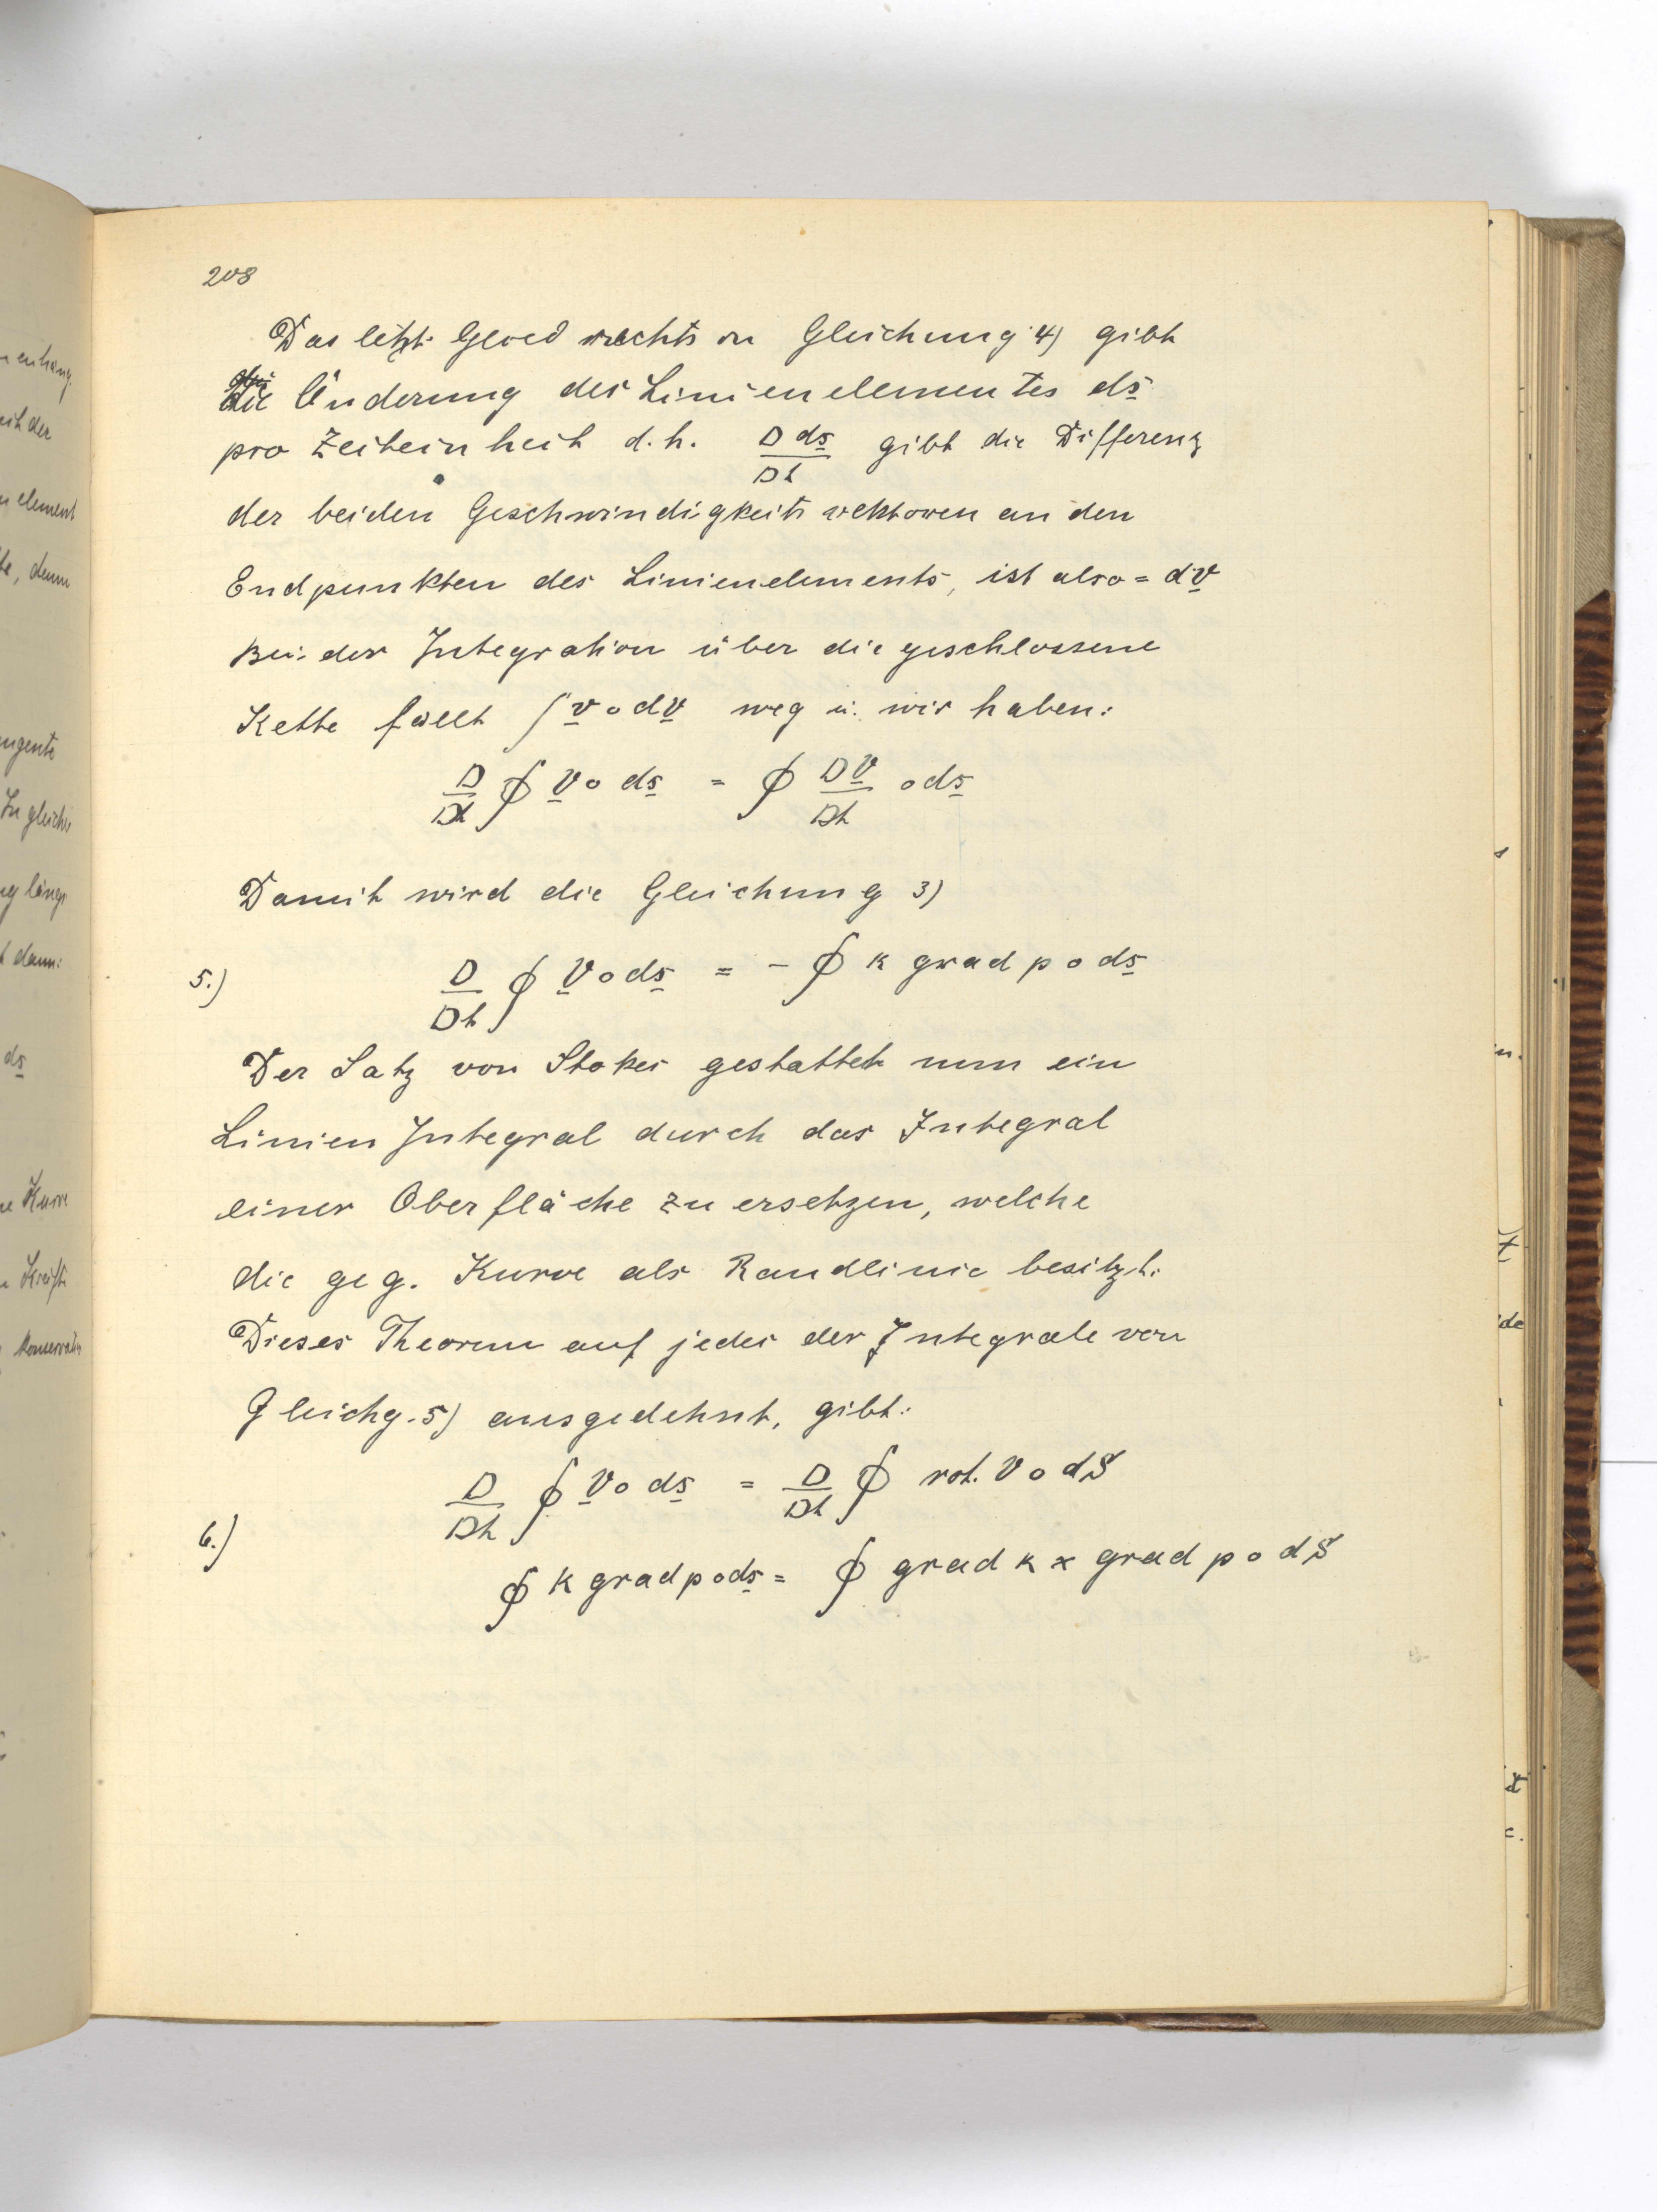 208
Das letzte Glied rechts in Gleichung 4) gibt
die Änderung des Linienelementes ds
pro Zeiteinheit d.h. D ds / Dt gibt die Differenz
der beiden Geschwindigkeitsvektoren an den
Endpunkten des Linienelements, ist also = dv
Bei der Integration über die geschlossene
Kette fällt ∫ v o dv weg u. wir haben:
D/Dt ∮ v o ds = ∮ Dv/Dt o ds
Damit wird die Gleichung 3)
5.) D/Dt ∮ v o ds = - ∮ k grad p o ds
Der Satz von Stokes gestattet nun ein
Linien Integral durch das Integral
einer Oberfläche zu ersetzen, welche
die geg. Kurve als Randlinie besitzt.
Dieses Theorem auf jedes der Integrale von
Gleichg. 5) ausgedehnt, gibt:
D/Dt ∮ v o ds = D/Dt ∮ rot. v o dS
6.)
∮ k grad p o ds = ∮ grad k x grad p o dS